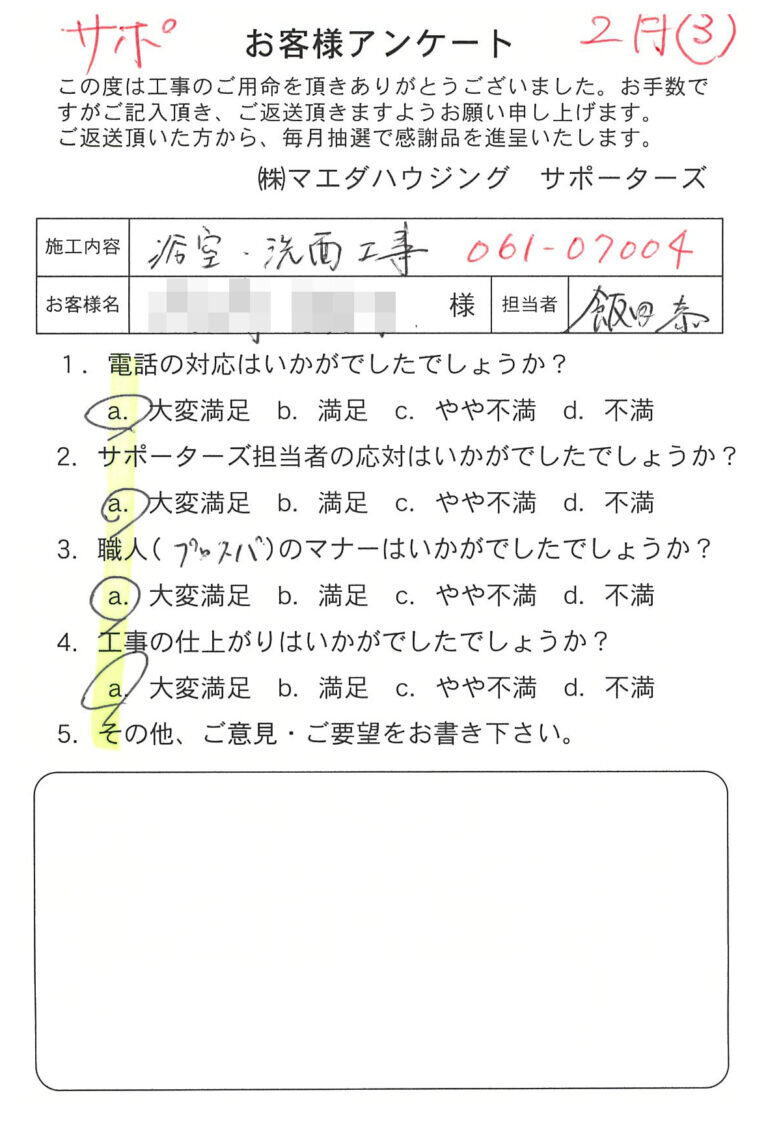 サポ お客様アンケート 2月(3)
この度は工事のご用命を頂きありがとうございました。お手数で
すがご記入頂き、ご返送頂きますようお願い申し上げます。
ご返送頂いた方から、毎月抽選で感謝品を進呈いたします。
㈱マエダハウジング サポーターズ
施工内容 浴室・洗面工事 061-07004
お客様名 様 担当者 飯田 泰
1. 電話の対応はいかがでしたでしょうか?
a. 大変満足 b. 満足 c. やや不満 d. 不満
2. サポーターズ担当者の応対はいかがでしたでしょうか?
a. 大変満足 b. 満足 c. やや不満 d. 不満
3. 職人(プロスパ)のマナーはいかがでしたでしょうか?
a. 大変満足 b. 満足 c. やや不満 d. 不満
4. 工事の仕上がりはいかがでしたでしょうか?
a. 大変満足 b. 満足 c. やや不満 d. 不満
5. その他、ご意見・ご要望をお書き下さい。